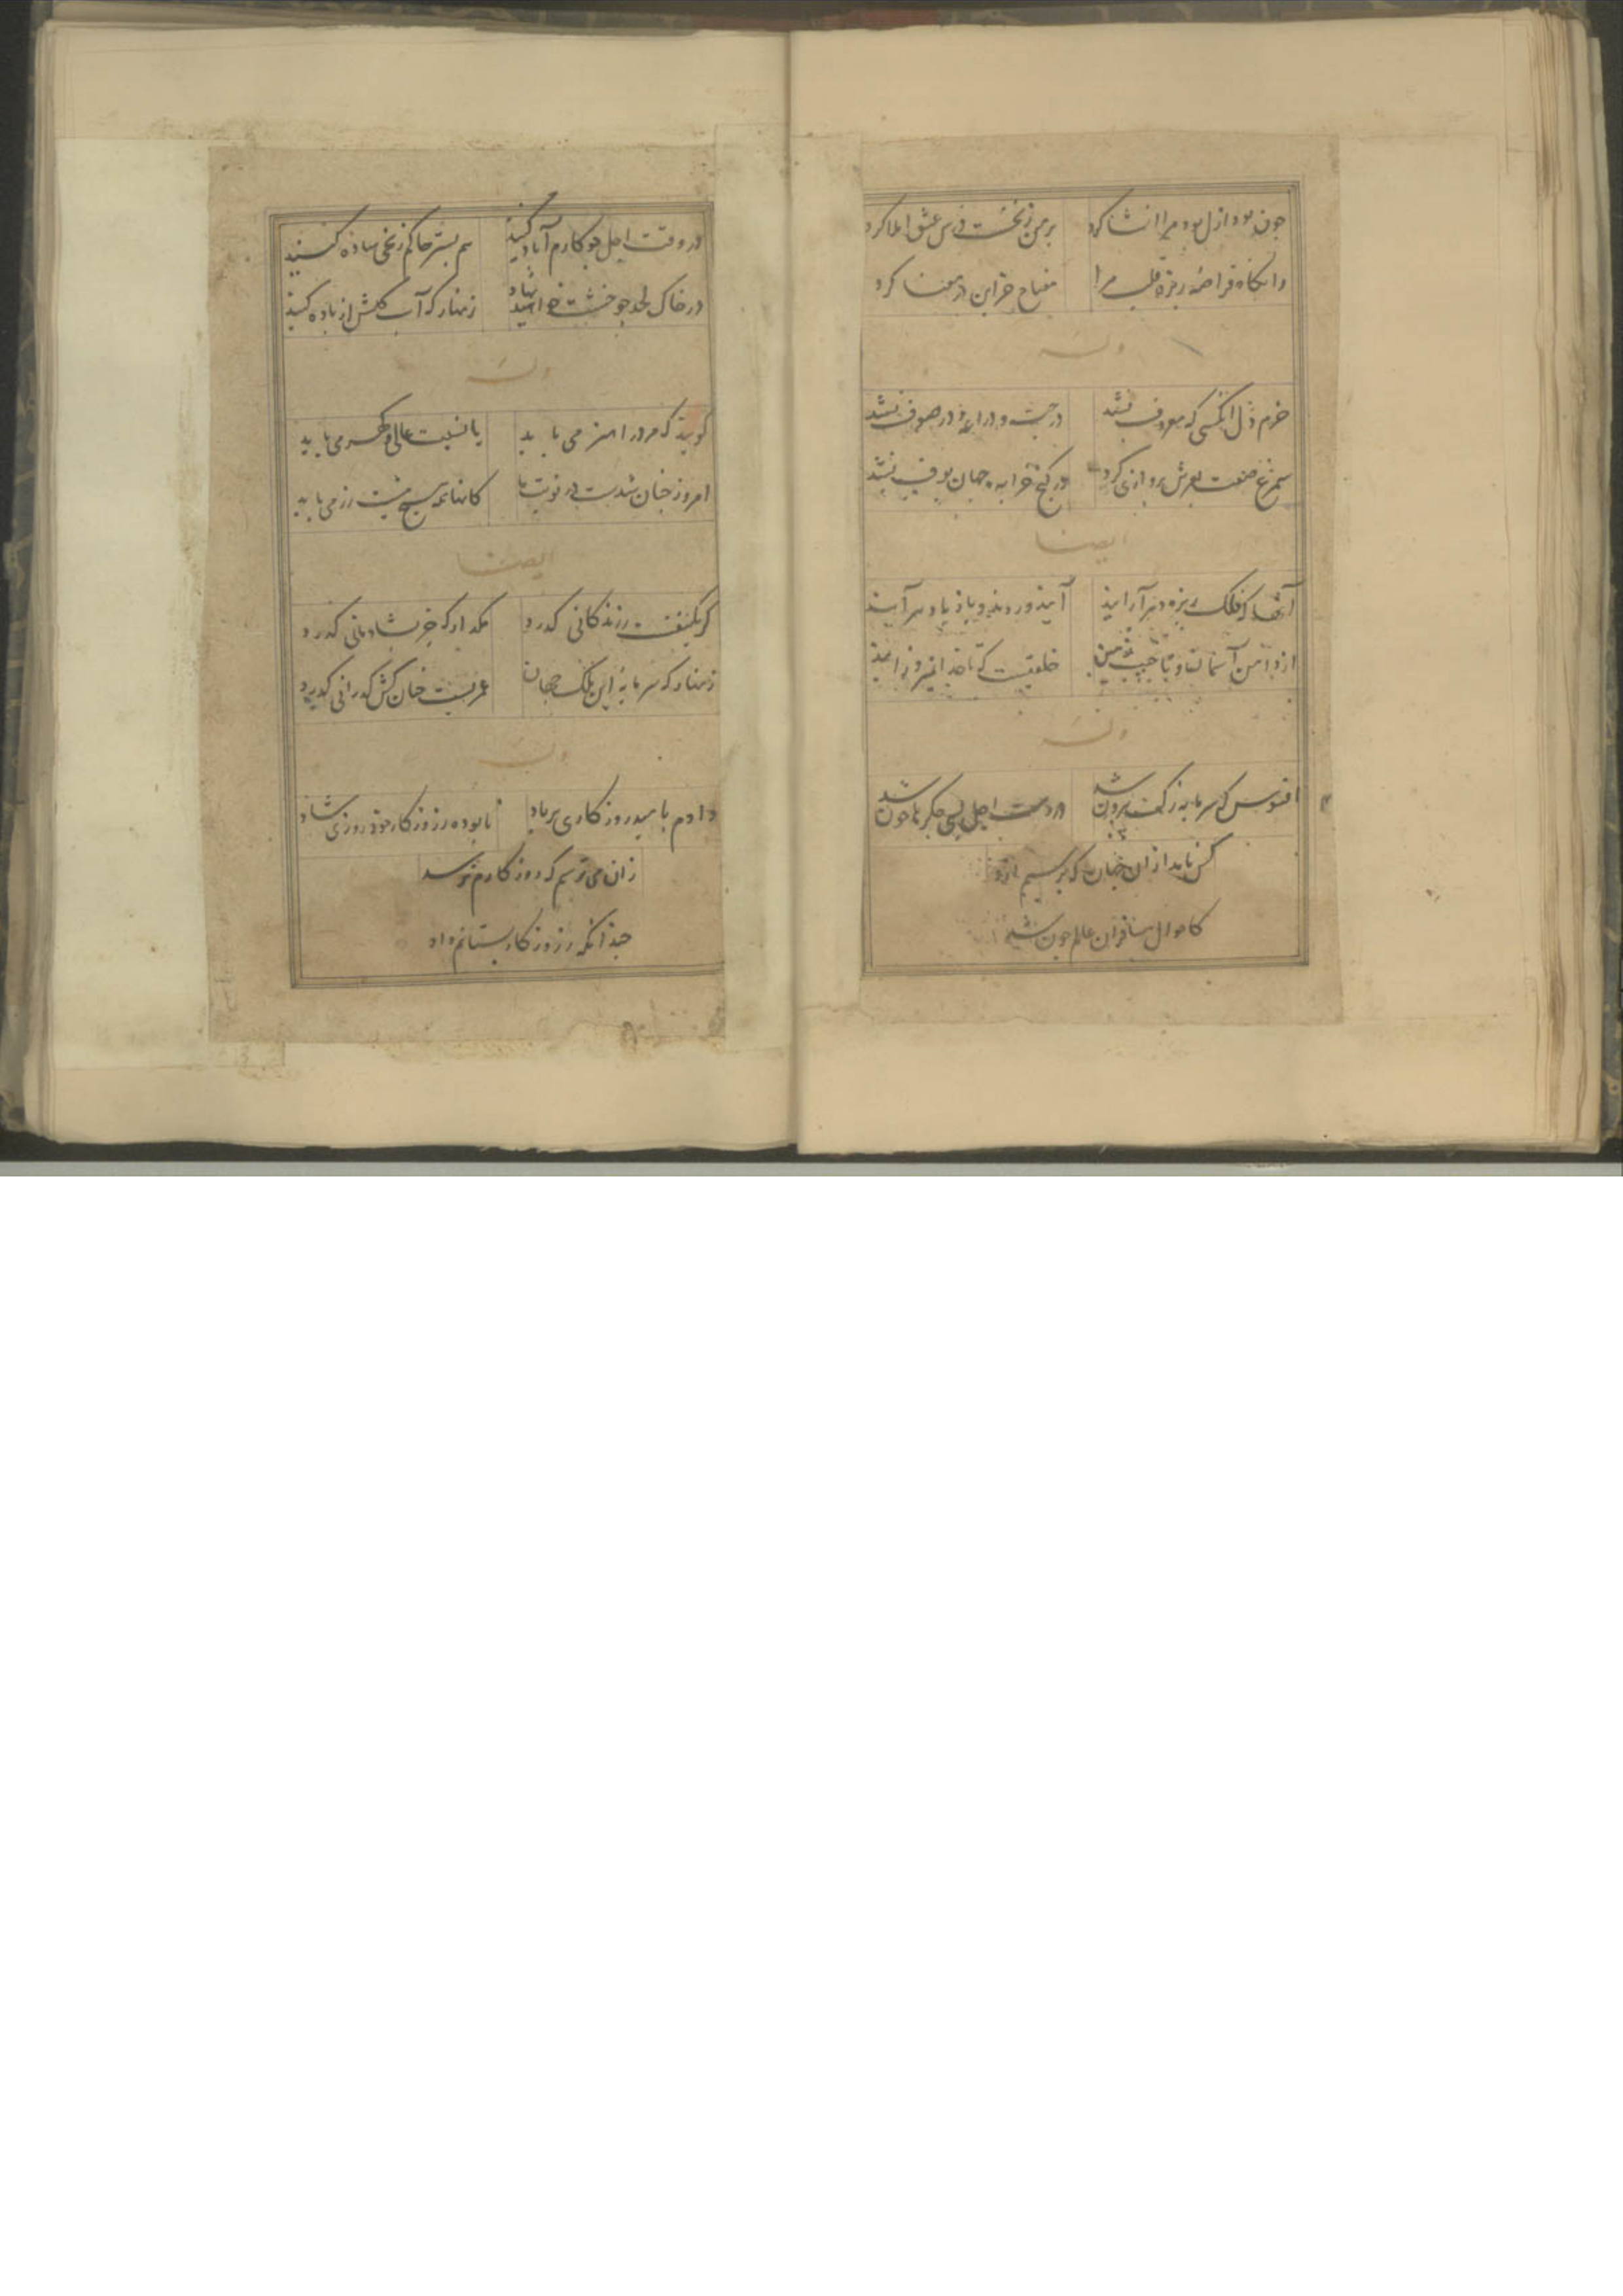 چون بود ازل بود مرا انشا کرد بر من ز نخست درس عشق املا کرد
وانگاه قراضه ریزه قلب مرا مفتاح خزاین در معنا کرد
وله
خرم دل آنکسی که معروف نشد در جبه و دراعه و در صوف نشد
سیمرغ صفت بعرش پروازی کرد در کنج خرابه جهان بوف نشد
ایضا
آنها که فلک ریزه دهر آرایند آیند و روند و باز با دهر آیند
از دامن آسمان و تا جیب زمین خلقیست که تا خدا نمیرد زایند
وله
افسوس که سرمایه ز کف بیرون شد در دست اجل بسی جگرها خون شد
کس نامد از آن جهان که پرسیم ازو
کاحوال مسافران عالم چون شد
در وقت اجل چو کارم آماده کنید هم بستر خاکم ز نخی ساده کنید
در خاک لحد چو خشت خواهید نهاد زنهار که آب گلش از باده کنید
وله
گویند که مرد را هنر می باید یا نسبت عالی و گهر می باید
امروز چنان شدست در نوبت ما کاینها همه هیچست زر می باید
ایضا
گر یک نفست ز زندگانی گذرد مگذار که جز بشادمانی گذرد
زنهار که سرمایه این ملک جهان عمریست چنان کش گذرانی گذرد
وله
دادم بامید روزگاری برباد نابوده ز روزگار خود روزی شاد
زان می ترسم که روزگارم نرسد
چندانکه ز روزگار بستانم داد